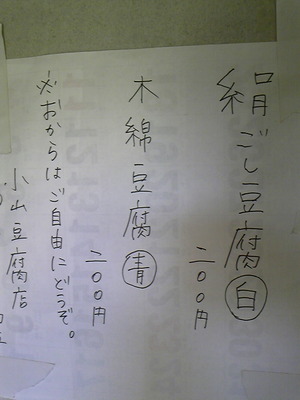 絹ごし豆腐白
二〇〇円
木綿豆腐青
二〇〇円
※おからはご自由にどうぞ。
小山豆腐店